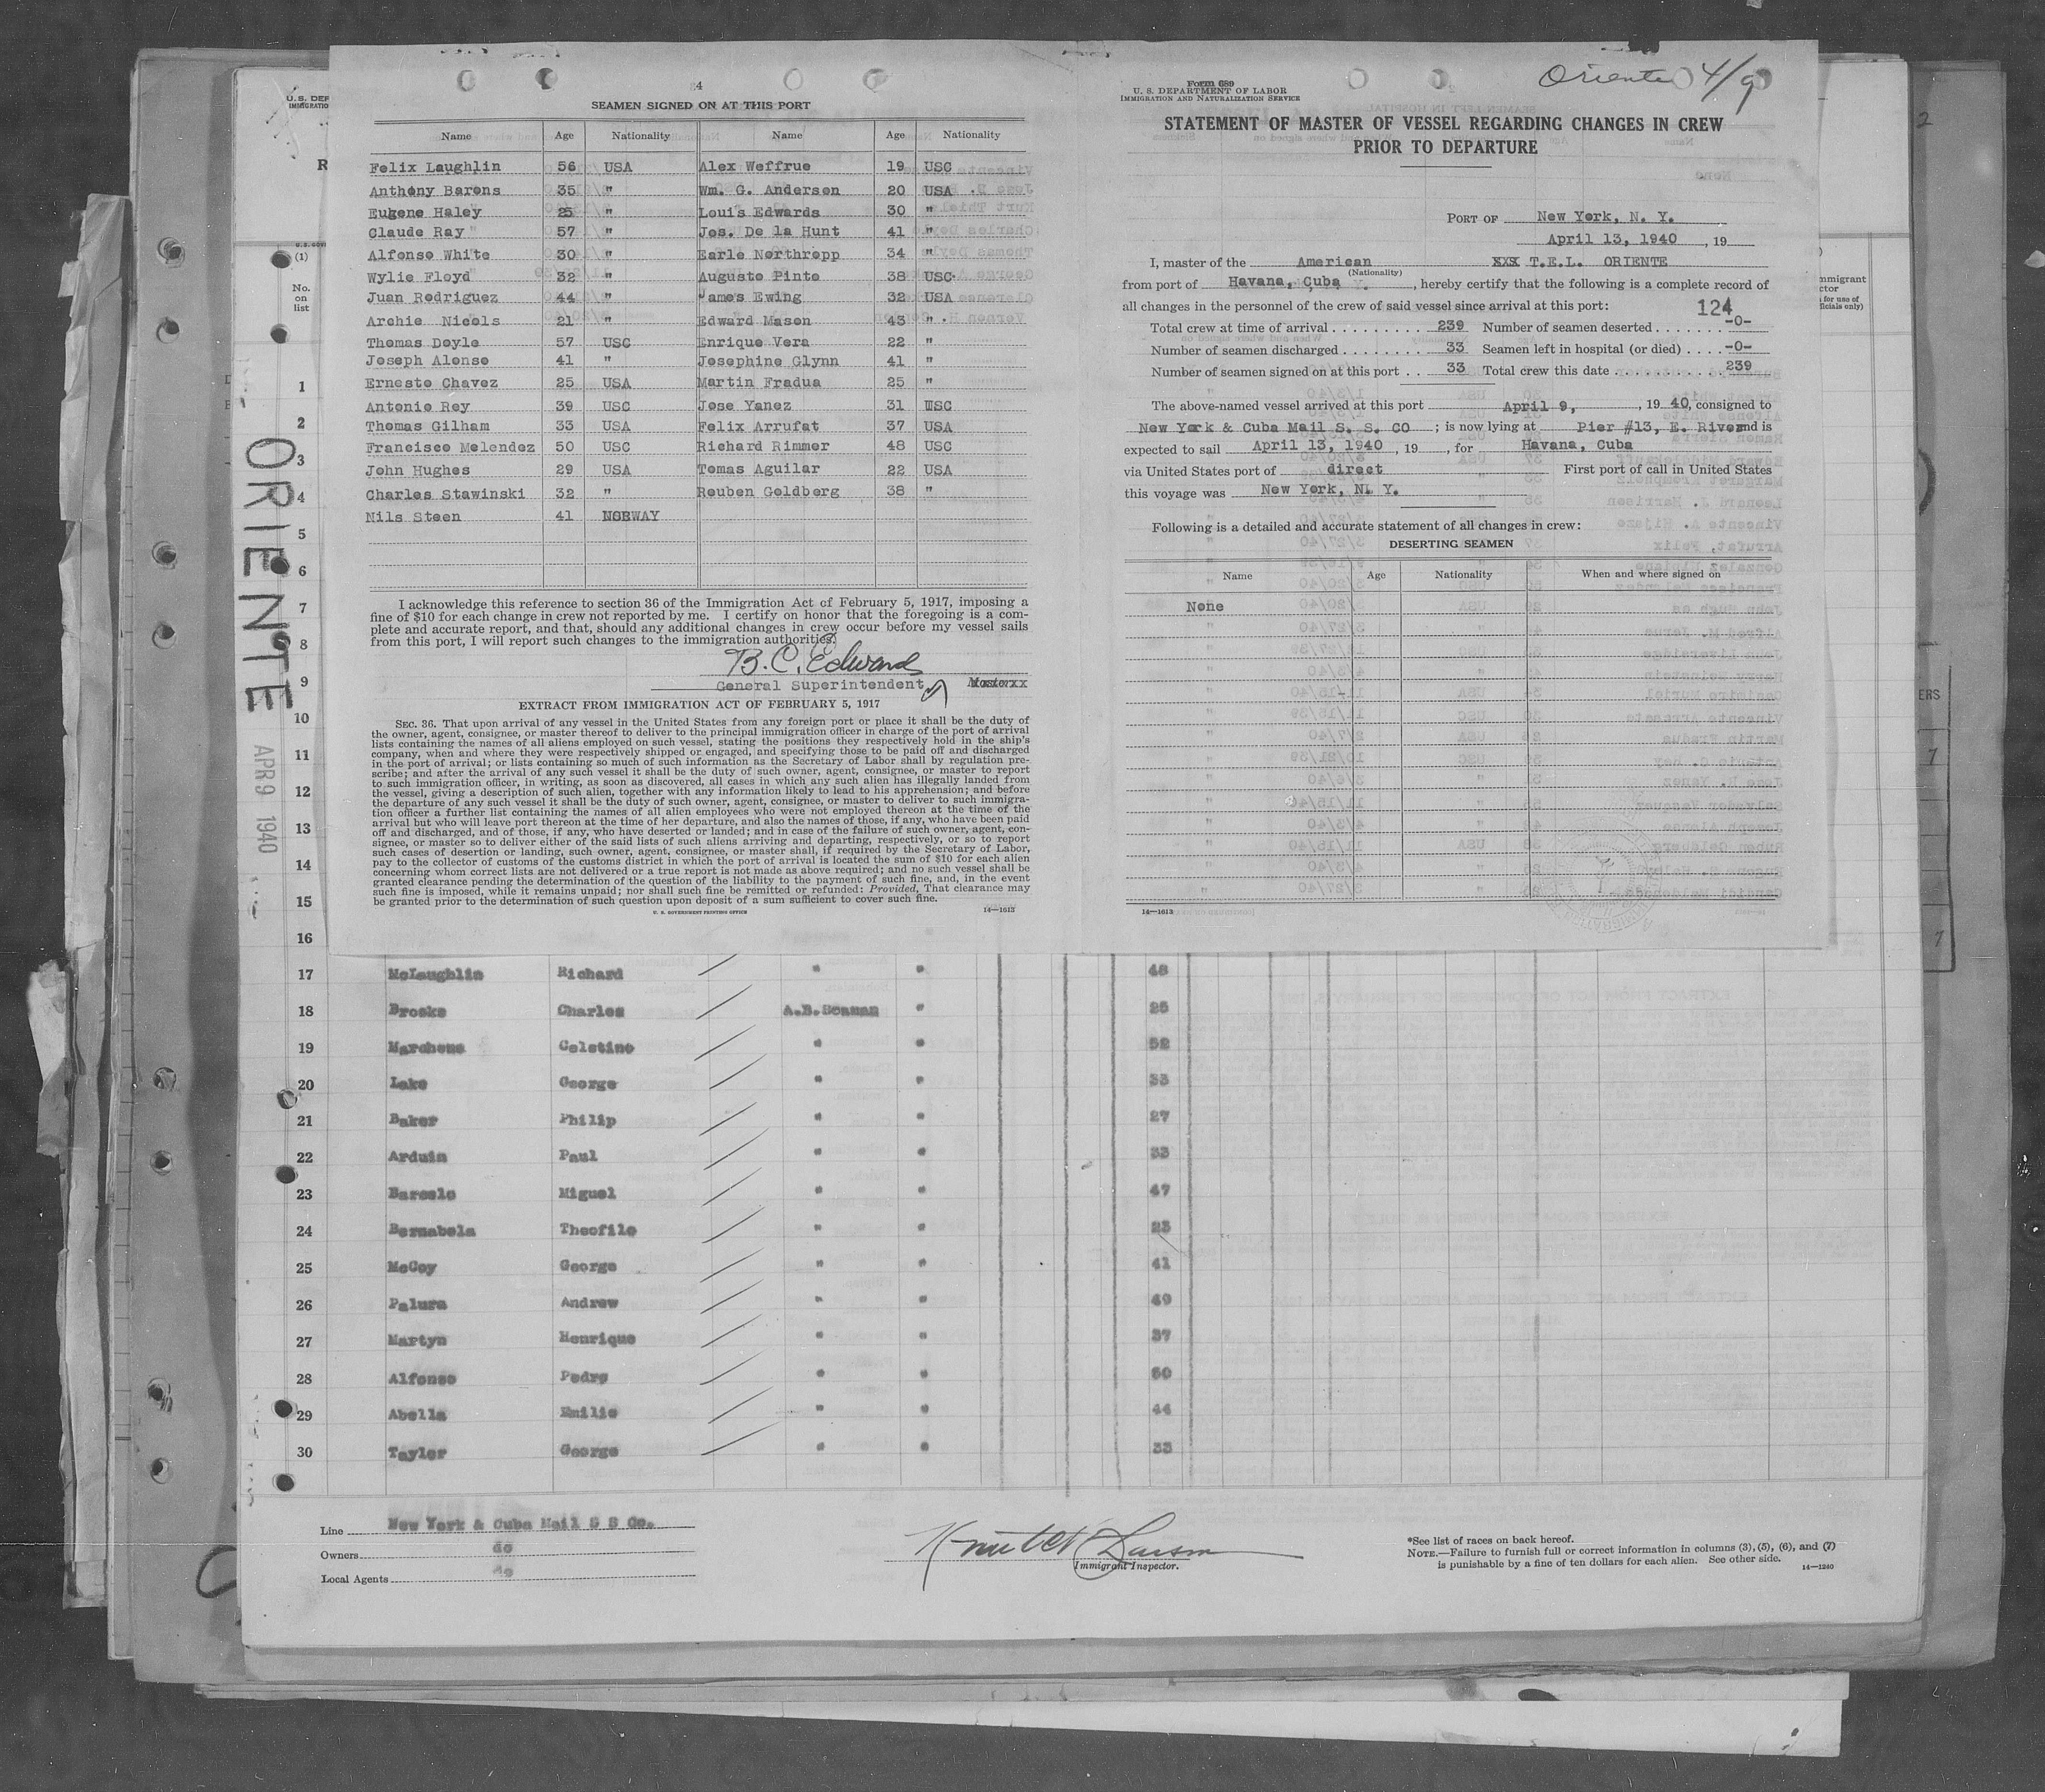 4
SEAMEN SIGNED ON AT THIS PORT
Name Age Nationality Name Age Nationality
Felix Laughlin 56 USA Alex Weffrue 19 USC
Anthony Barons 35 " Wm. G. Anderson 20 USA
Eugene Haley 25 " Louis Edwards 30 "
Claude Ray 57 " Jos. De la Hunt 41 "
Alfonso White 30 " Earle Northropp 34 "
Wylie Floyd 32 " Auguste Pinto 38 USC
Juan Rodriguez 44 " James Ewing 32 USA
Archie Nicols 21 " Edward Mason 43 "
Thomas Doyle 57 USC Enrique Vera 22 "
Joseph Alonso 41 " Josephine Glynn 41 "
Ernesto Chavez 25 USA Martin Fradua 25 "
Antonio Rey 39 USC Jose Yanez 31 USC
Thomas Gilham 33 USA Felix Arrufat 37 USA
Francisco Melendez 50 USC Richard Rimmer 48 USC
John Hughes 29 USA Tomas Aguilar 22 USA
Charles Stawinski 32 " Reuben Goldberg 38 "
Nils Steen 41 NORWAY
I acknowledge this reference to section 36 of the Immigration Act of February 5, 1917, imposing a
fine of $10 for each change in crew not reported by me. I certify on honor that the foregoing is a com-
plete and accurate report, and that, should any additional changes in crew occur before my vessel sails
from this port, I will report such changes to the immigration authorities.
B. C. Edwards
General Superintendent
EXTRACT FROM IMMIGRATION ACT OF FEBRUARY 5, 1917
SEC. 36. That upon arrival of any vessel in the United States from any foreign port or place it shall be the duty of
the owner, agent, consignee, or master thereof to deliver to the principal immigration officer in charge of the port of arrival
lists containing the names of all aliens employed on such vessel, stating the positions they respectively hold in the ship's
company, when and where they were respectively shipped or engaged, and specifying those to be paid off and discharged
in the port of arrival; or lists containing so much of such information as the Secretary of Labor shall by regulation pre-
scribe; and after the arrival of any such vessel it shall be the duty of such owner, agent, consignee, or master to report
to such immigration officer, in writing, as soon as discovered, all cases in which any such alien has illegally landed from
the vessel, giving a description of such alien, together with any information likely to lead to his apprehension; and before
the departure of any such vessel it shall be the duty of such owner, agent, consignee, or master to deliver to such immigra-
tion officer a further list containing the names of all alien employees who were not employed thereon at the time of the
arrival but who will leave port thereon at the time of her departure, and also the names of those, if any, who have been paid
off and discharged, and of those, if any, who have deserted or landed; and in case of the failure of such owner, agent, con-
signee, or master so to deliver either of the said lists of such aliens arriving and departing, respectively, or so to report
such cases of desertion or landing, such owner, agent, consignee, or master shall, if required by the Secretary of Labor,
pay to the collector of customs of the customs district in which the port of arrival is located the sum of $10 for each alien
concerning whom correct lists are not delivered or a true report is not made as above required; and no such vessel shall be
granted clearance pending the determination of the question of the liability to the payment of such fine, and, in the event
such fine is imposed, while it remains unpaid; nor shall such fine be remitted or refunded: Provided, That clearance may
be granted prior to the determination of such question upon deposit of a sum sufficient to cover such fine.
U. S. GOVERNMENT PRINTING OFFICE 14—1613
Oriente 4/9
Form 689
U. S. DEPARTMENT OF LABOR
IMMIGRATION AND NATURALIZATION SERVICE
STATEMENT OF MASTER OF VESSEL REGARDING CHANGES IN CREW
PRIOR TO DEPARTURE
PORT OF New York, N. Y.
April 13, 1940, 19
I, master of the American XXX T.E.L. ORIENTE
(Nationality)
from port of Havana, Cuba, hereby certify that the following is a complete record of
all changes in the personnel of the crew of said vessel since arrival at this port: 124
Total crew at time of arrival 239 Number of seamen deserted -0-
Number of seamen discharged 33 Seamen left in hospital (or died) -0-
Number of seamen signed on at this port 33 Total crew this date 239
The above-named vessel arrived at this port April 9, 1940, consigned to
New York & Cuba Mail S. S. CO; is now lying at Pier #13, E. River and is
expected to sail April 13, 1940, 19, for Havana, Cuba
via United States port of direct First port of call in United States
this voyage was New York, N. Y.
Following is a detailed and accurate statement of all changes in crew:
DESERTING SEAMEN
Name Age Nationality When and where signed on
None
14—1613
U. S. DEP
IMMIGRATION
R
(1)
No.
on
list
ORIENTE
APR 9 1940
1
2
3
4
5
6
7
8
9
10
11
12
13
14
15
16
17 McLaughlin Richard " " 48
18 Brooks Charles A.B.Seaman " 25
19 Marchena Celstino " " 52
20 Lake George " " 33
21 Baker Philip " " 27
22 Arduin Paul " " 33
23 Barcelo Miguel " " 47
24 Bernabela Theofilo " " 23
25 McCoy George " " 41
26 Palura Andrew " " 49
27 Martyn Henrique " " 37
28 Alfonso Pedro " " 50
29 Abella Emilio " " 44
30 Tayler George " " 33
Line New York & Cuba Mail S S Co.
Owners do
Local Agents do
Immigrant Inspector.
*See list of races on back hereof.
NOTE.—Failure to furnish full or correct information in columns (3), (5), (6), and (7)
is punishable by a fine of ten dollars for each alien. See other side. 14—1240